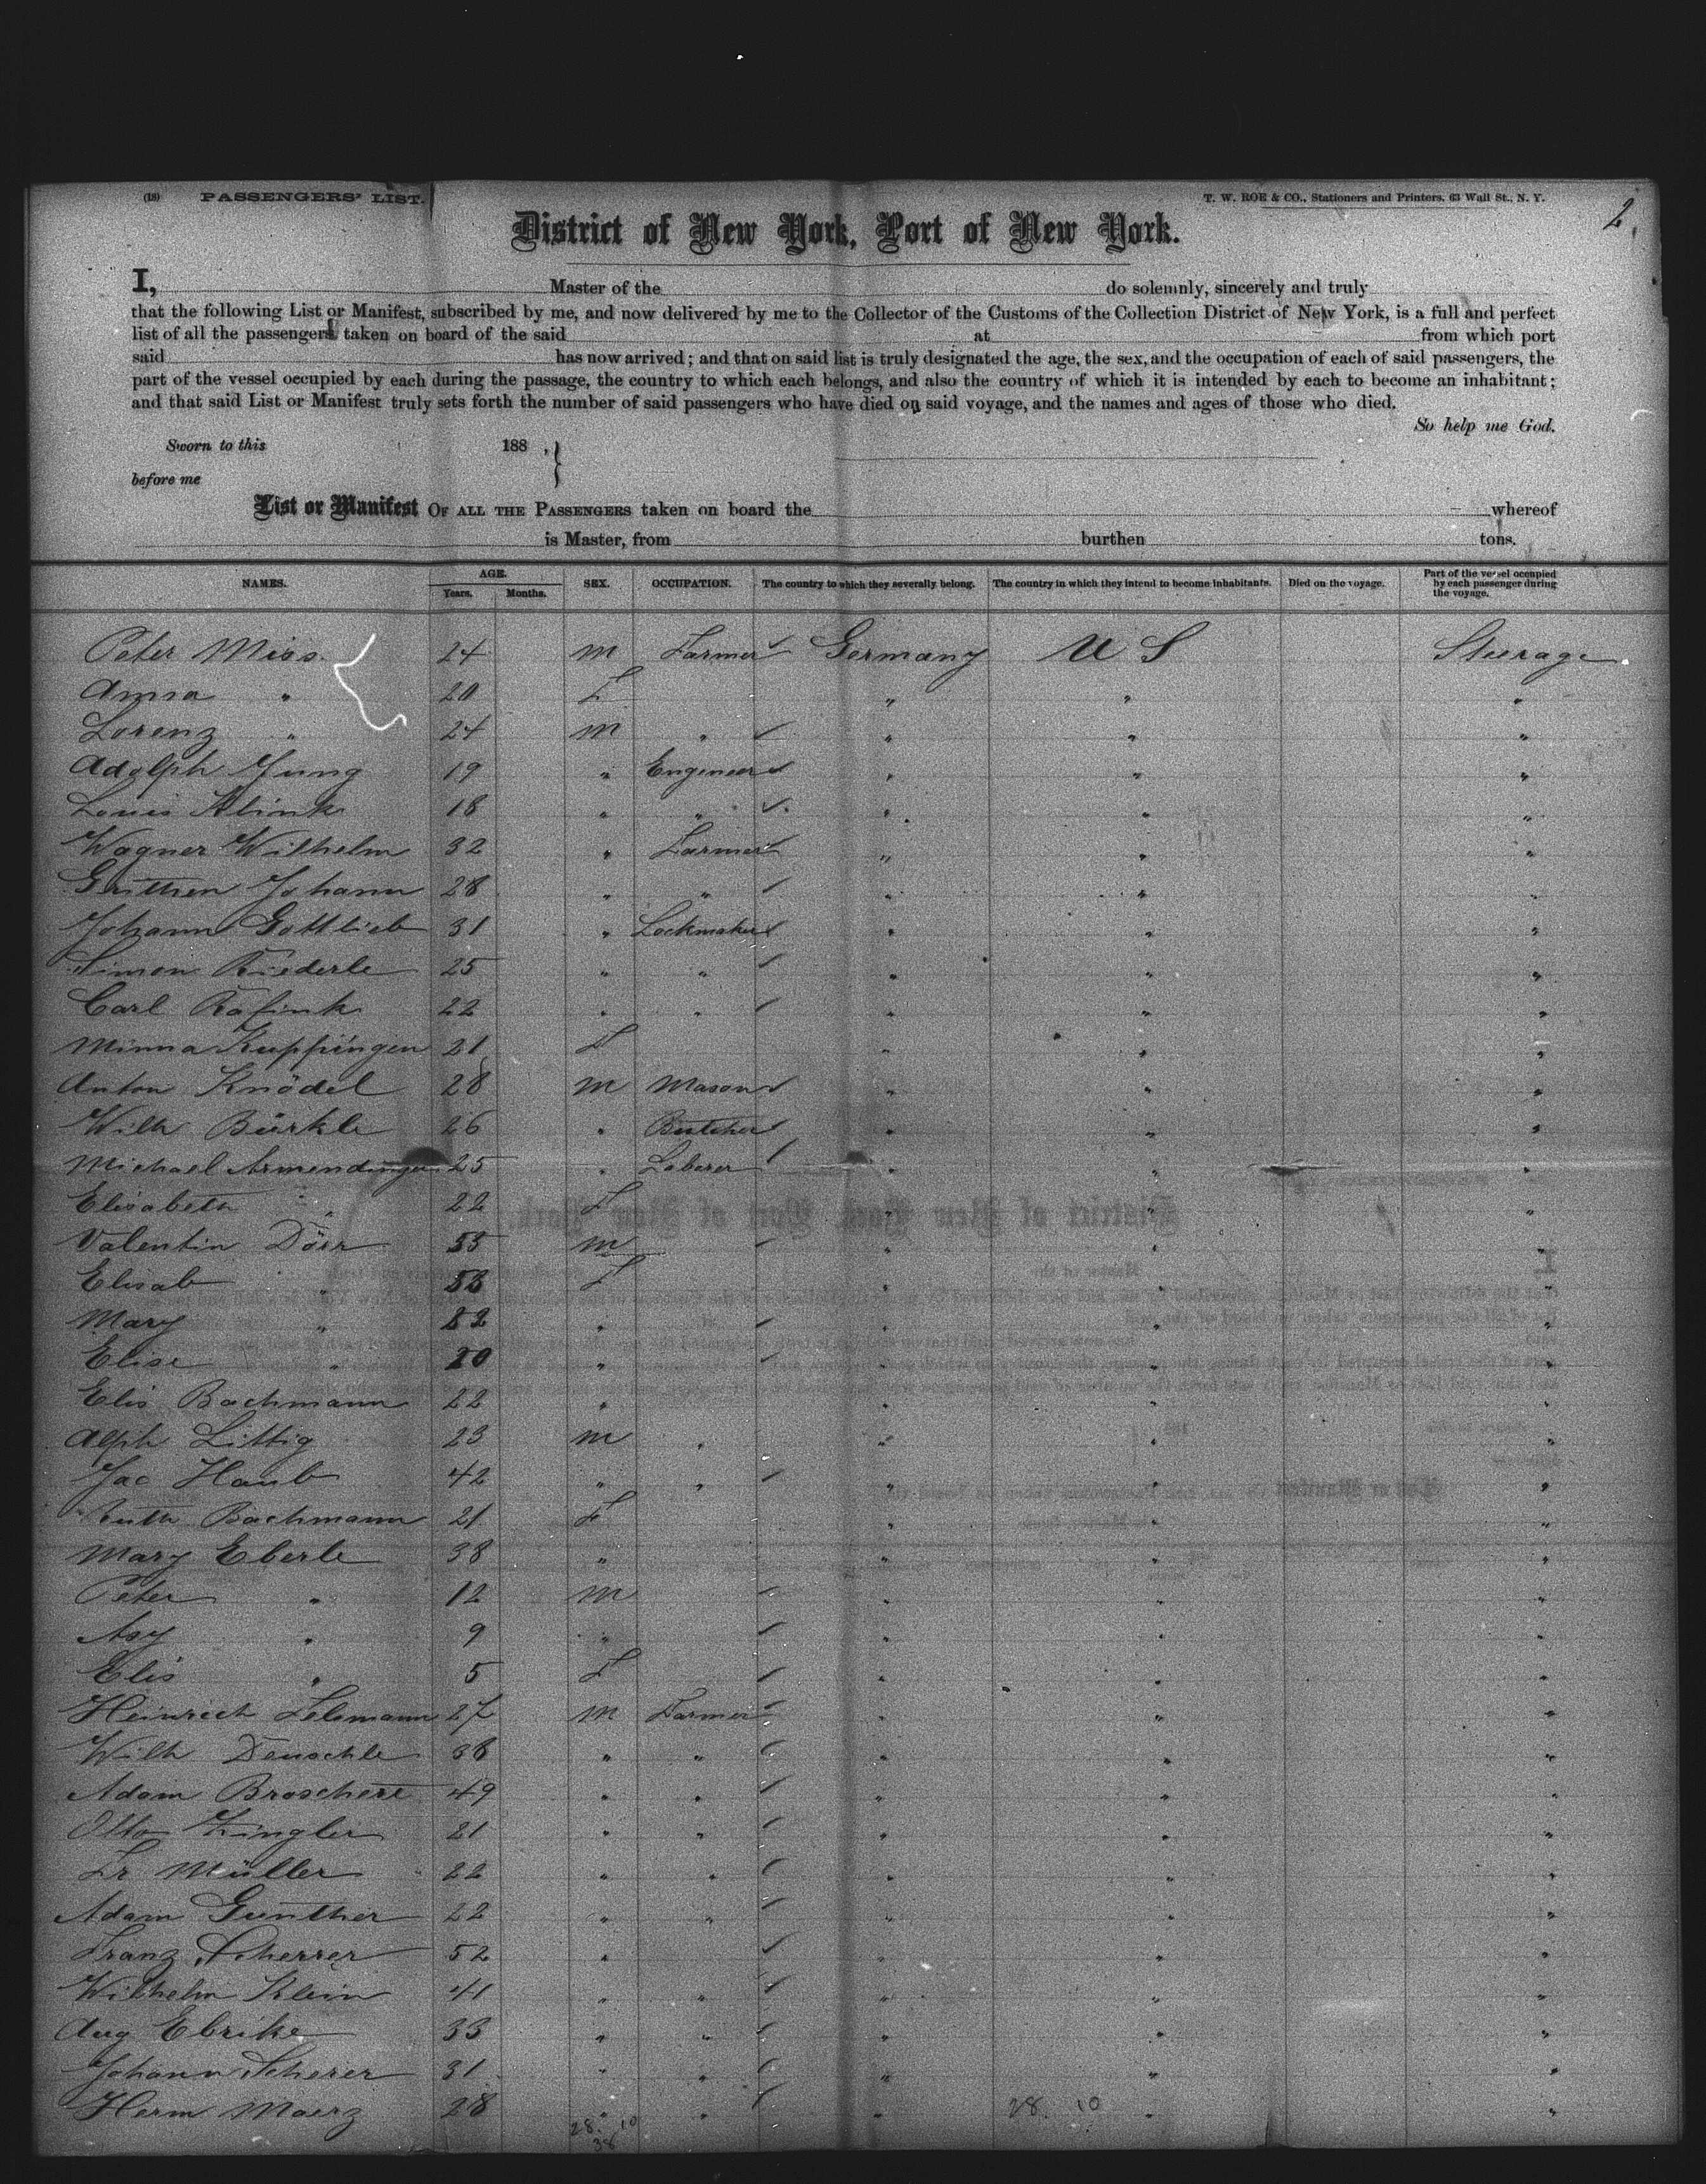 (18) PASSENGERS' LIST. T. W. ROE & CO., Stationers and Printers, 63 Wall St., N. Y. 2.
District of New York, Port of New York.
I, Master of the do solemnly, sincerely and truly
that the following List or Manifest, subscribed by me, and now delivered by me to the Collector of the Customs of the Collection District of New York, is a full and perfect
list of all the passengers taken on board of the said at from which port
said has now arrived; and that on said list is truly designated the age, the sex, and the occupation of each of said passengers, the
part of the vessel occupied by each during the passage, the country to which each belongs, and also the country of which it is intended by each to become an inhabitant;
and that said List or Manifest truly sets forth the number of said passengers who have died on said voyage, and the names and ages of those who died.
So help me God.
Sworn to this 188 ,
before me
List or Manifest OF ALL THE PASSENGERS taken on board the whereof
is Master, from burthen tons.
NAMES. AGE. Years. Months. SEX. OCCUPATION. The country to which they severally belong. The country in which they intend to become inhabitants. Died on the voyage. Part of the vessel occupied by each passenger during the voyage.
Peter Miss 24 M Farmer Germany U S Steerage
Anna " 20 F " " "
Lorenz " 24 M " " " "
Adolph Jung 19 " Engeneer " " "
Louis Klink 18 " " " " "
Wagner Wilhelm 32 " Farmer " " "
Johann 28 " " " " "
Johann Gottlieb 31 " Lockmaker " " "
Simon Riederle 25 " " " " "
Carl Rafink 22 " " " " "
Minna Kuppingen 21 F " " "
Anton Knödel 28 M Mason " " "
Wilh Bürkle 26 " Butcher " " "
Michael Armendinger 25 " Laborer " " "
Elisabeth " 22 F " "
Valentin Dörr 55 M " " "
Elisab " 53 F " " "
Mary " 22 " " " "
Elise " 20 " " " "
Elis Bachmann 22 " " " "
Alph Littig 23 M " " " "
Jac Haub 42 " " " " "
Bachmann 21 F " " "
Mary Eberle 38 " " " "
Peter " 12 M " " "
" 9 " " " "
Elis " 5 F " " "
Heinrich 27 M Farmer " " "
Wilh Deuschle 38 " " " " "
Adam Broschert 49 " " " " "
Otto Zingler 21 " " " " "
Fr Müller 22 " " " " "
Adam Gunther 22 " " " " "
Franz Scherrer 52 " " " "
Wilhelm Klein 41 " " " " "
Aug Ebrike 33 " " " " "
Johann Scherer 31 " " " " "
Herm Maerz 28 " " " " "
28. 10 28. 10
38